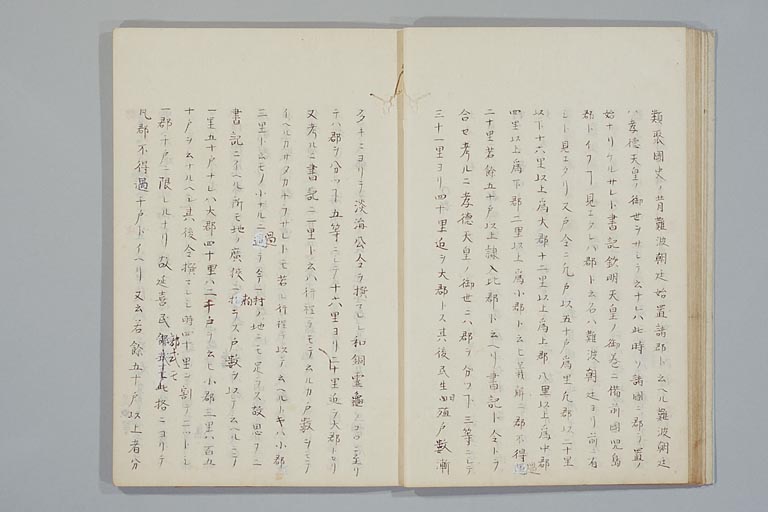 類聚國史ノ昔難波朝廷始置諸郡ト云ヘル難波朝廷
ハ孝德天皇ノ御世ヲサシテ云ナレハ此時ソ諸國ニ郡ヲ置ノ
始ナリケルサレト書記欽明天皇ノ御巻ニ備前國児島
郡トイフヿ見エタレハ郡ト云名ハ難波朝廷ヨリ前ニ有
シト見エタリ又戸令ニ凡戸以五十戸為里凡郡以二十里
以下十六里以上為大郡十二里以上為上郡八里以上為中郡
四里以上為下郡二里以上為小郡ト云ヒ義解ニ郡不得過
二十里若餘五十戸以上隷入比郡ト云ヘリ書記ト令トヲ
合セ考ルニ孝德天皇ノ御世ニハ郡ヲ分ツヿ三等ニシテ
三十一里ヨリ四十里迄ヲ大郡トス其後民生日殖戸数漸
ニヨリテ淡海公令ヲ撰ヒ和銅霊亀
テハ郡ヲ分ツヿ五等ニシテ十六里ヨリ二十里迄ヲ大郡トセリ
又考ルニ書記ニ一里ト云ハ行程ヲモテ云ルカ戸数ヲモテ
イヘルカサタカナラサレトモ若シ行程ヲ以テ云ヘルトキハ小郡
三里ト云モノ小ナルニ過テ今一村ノ地ニモ足ラス故思フニ
書記ニイヘル所モ地ノ廣狭ニ拘ラス戸数ヲ以テ云ヘルニテ
一里五十戸ナレハ大郡四十里ハ二千戸ヲ云ヒ小郡三里ハ百五
十戸ヲ云ナルヘシ其後令撰 時四十里ニ割テ二ツトシ
一郡ヲ千戸ニ限レルナリ故延喜民部式ニモ此格ニヨリテ
凡郡不得過千戸トイヘリ又云若餘五十戸以上者分